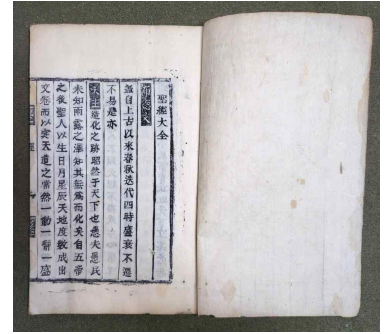 聖經大全
布德文
盖自上古以來春秋迭代四時盛衰不遷
不易是亦
天主造化之跡昭然于天下也愚夫愚民
未知雨露之澤知其無爲而化矣自五帝
之後聖人以生日月星辰天地度數成出
文卷而以定天道之常然一動一靜一盛